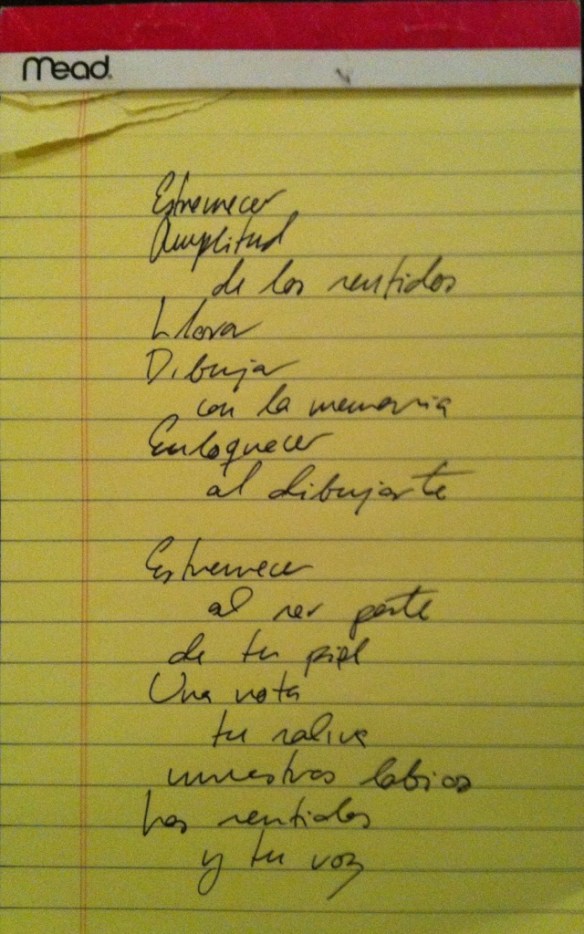 Mead
Estremecer
Amplitud
de los sentidos
Llorar
Dibujar
con la memoria
Enloquecer
al dibujarte
Estremecer
al ser parte
de tu piel
Una nota
tu saliva
nuestros labios
Los sentidos
y tu voz